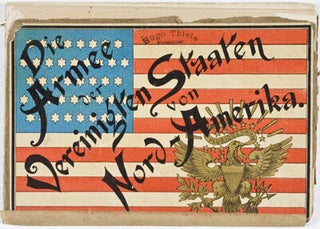 Die
Armee
der
Vereinigten Staaten
von
Nord-Amerika.
Hugo Thiele